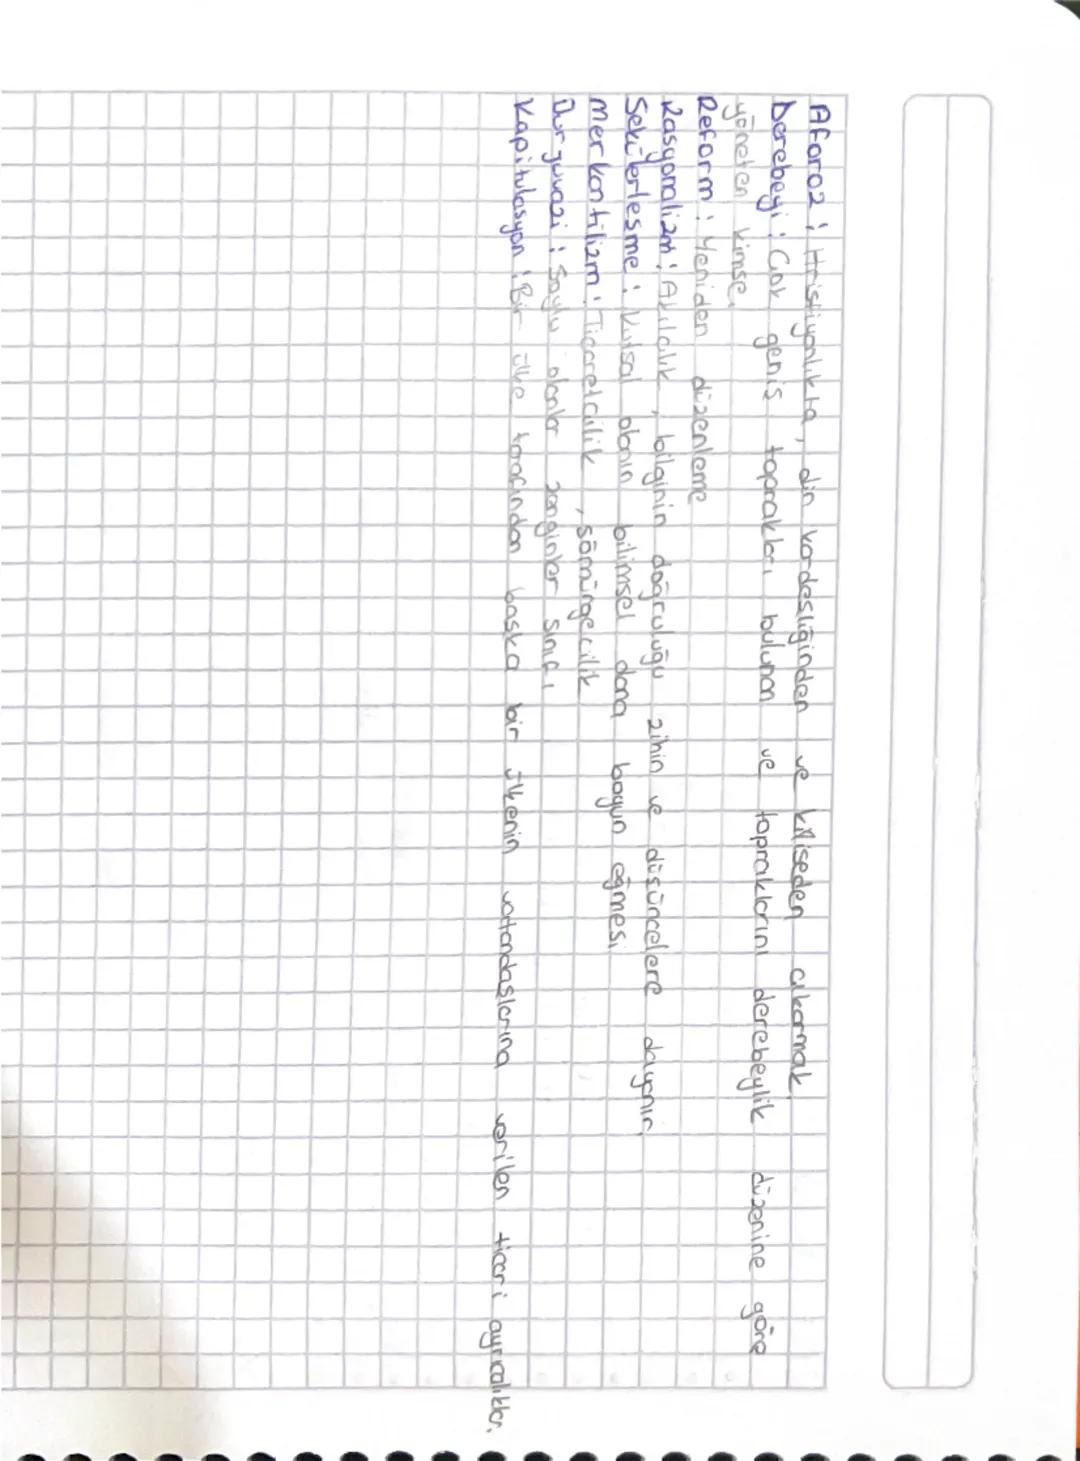 Aforoz : Hristiyanlıkta, din kardesliğinden ve kiliseden çıkarmak.
Derebeyi : Çok genis toprakları bulunan ve topraklarını derebeylik düzenine göre
yöneten kimse.
Reform : Yeniden düzenleme
Rasyonalizm : Akılcılık, bilginin doğruluğu zihin ve düsüncelere dayanır.
Sekülerlesme : Kutsal olanın bilimsel dana boyun eğmesi
Merkantilizm : Ticaretcilik, sömürgecilik
Burjuvazi : Soylu olanlar zenginler sınıfı
Kapitulasyon : Bir ülke tarafından baska bir ülkenin vatandaslarına verilen ticari ayrıcalıklar.